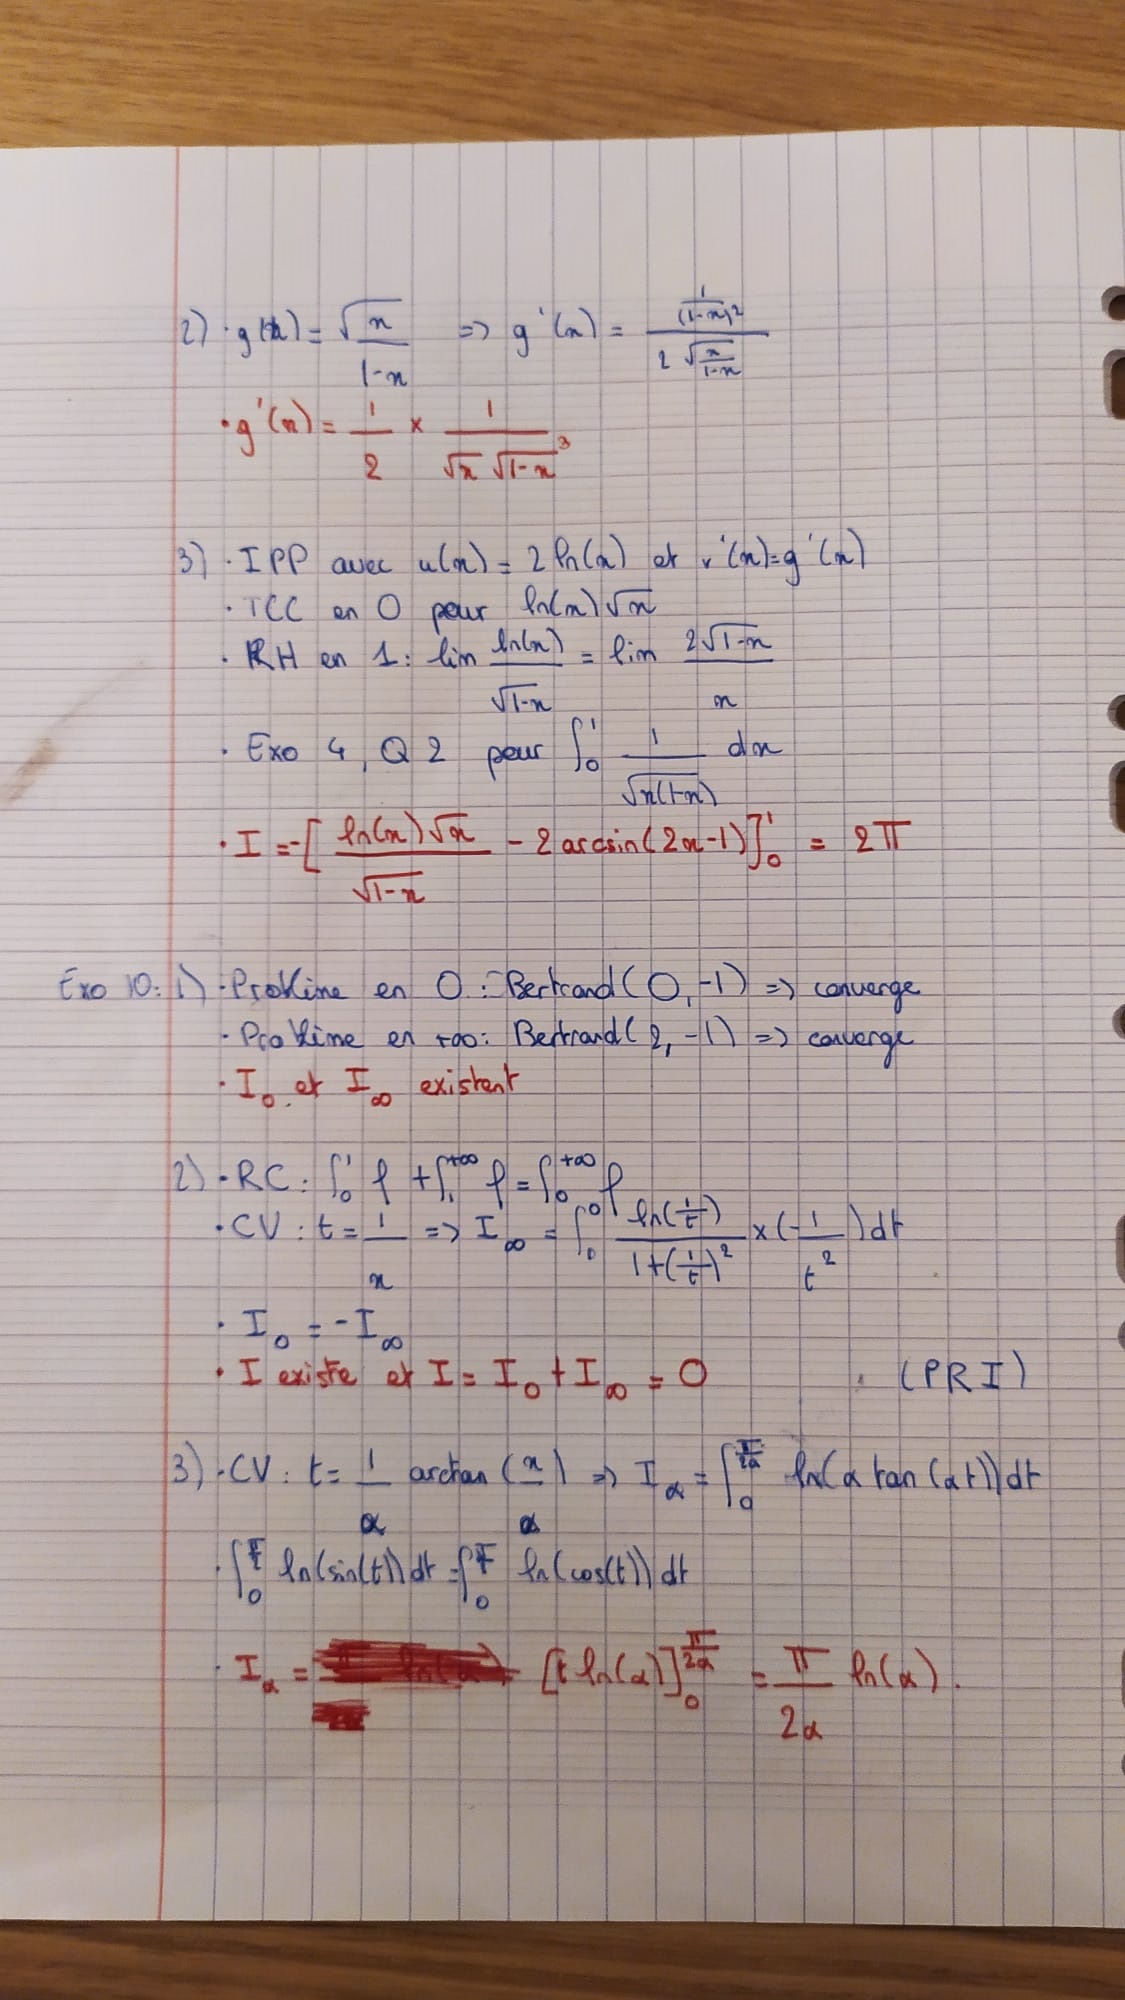 2) · g(x) = √(x/(1-x)) => g'(x) = (1/(1-x)²)/(2√(x/(1-x)))
· g'(x) = 1/2 × 1/(√x √(1-x)³)
3) · IPP avec u(x) = 2 ln(x) et v'(x)=g'(x)
· TCC en 0 pour ln(x)√x
· RH en 1: lim ln(x)/√(1-x) = lim 2√(1-x)/x
· Exo 4, Q2 pour ∫₀¹ 1/√(x(1-x)) dx
· I = -[ln(x)√x/√(1-x) - 2 arcsin(2x-1)]₀¹ = 2π
Exo 10: 1) · Problème en 0 : Bertrand(0,-1) => converge
· Problème en +∞: Bertrand(2,-1) => converge
· I₀ et I∞ existent
2) · RC: ∫₀¹ f + ∫₁^{+∞} f = ∫₀^{+∞} f
· CV: t = 1/x => I∞ = ∫ ln(1/t)/(1+(1/t)²) × (-1/t²)dt
· I₀ = -I∞
· I existe et I = I₀ + I∞ = 0 (PRI)
3) · CV: t = 1/α arctan(x/α) => I_α = ∫₀^{π/2α} ln(α tan(αt))dt
· ∫₀ ln(sin(t))dt = ∫₀ ln(cos(t))dt
· I_α = [t ln(α)]₀^{π/2α} = π/2α ln(α).